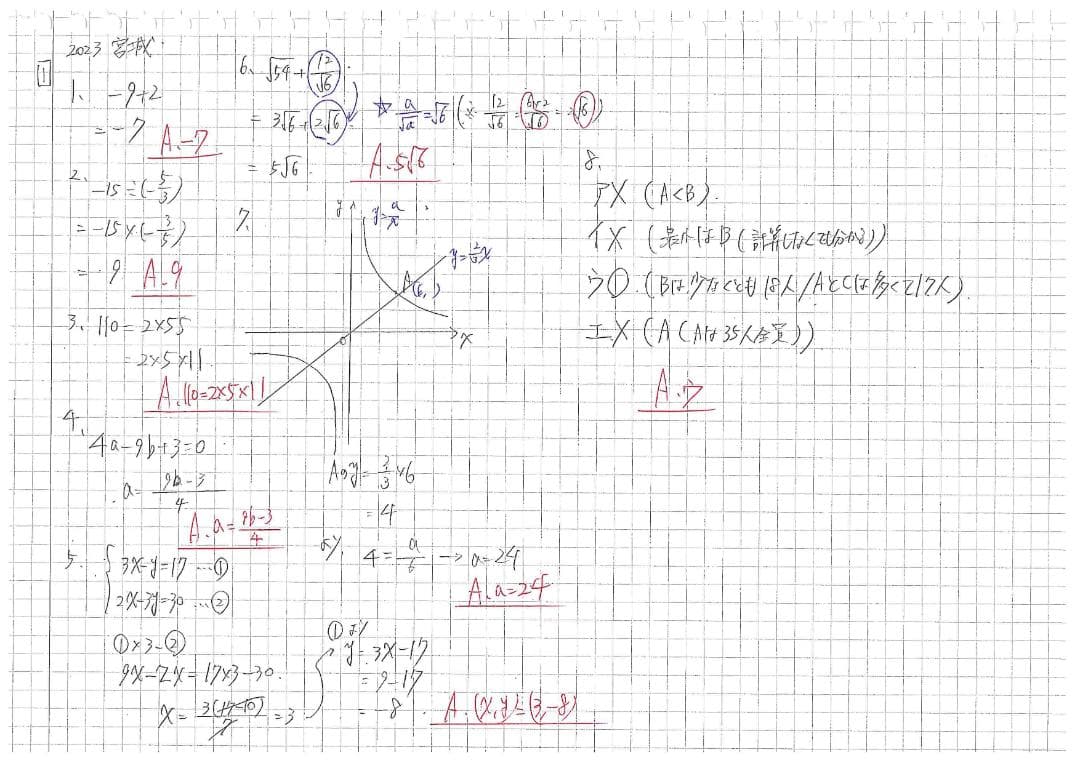 2023 宮城
1
1、 -9+2
= -7
A. -7
2、 -15÷(-5/3)
= -15×(-3/5)
= 9 A. 9
3、 110 = 2×55
= 2×5×11
A. 110=2×5×11
4、
4a-9b+3=0
a= 9b-3/4
A. a= 9b-3/4
5. { 3x-y=17 …①
2x-3y=30 …②
①×3-②
9x-2x=17×3-30
x= 3(17-10)/7 =3
①より
y= 3x-17
= 9-17
= -8
A. (x,y)=(3,-8)
6、 √54+12/√6
= 3√6+2√6
= 5√6
☆ a/√a=√a (※ 12/√6=6×2/√6=2√6)
A. 5√6
7、
y
y=a/x
y=2/3x
A
(6, )
O
x
Aのy= 2/3×6
= 4
より、 4=a/6 → a=24
A. a=24
8、
ア X (A<B).
イ X (最小はB(計算しなくても分かる))
ウ ○. (Bは少なくとも18人/AとCは多くて17人)
エ X (A(Aは35人全員))
A. ウ